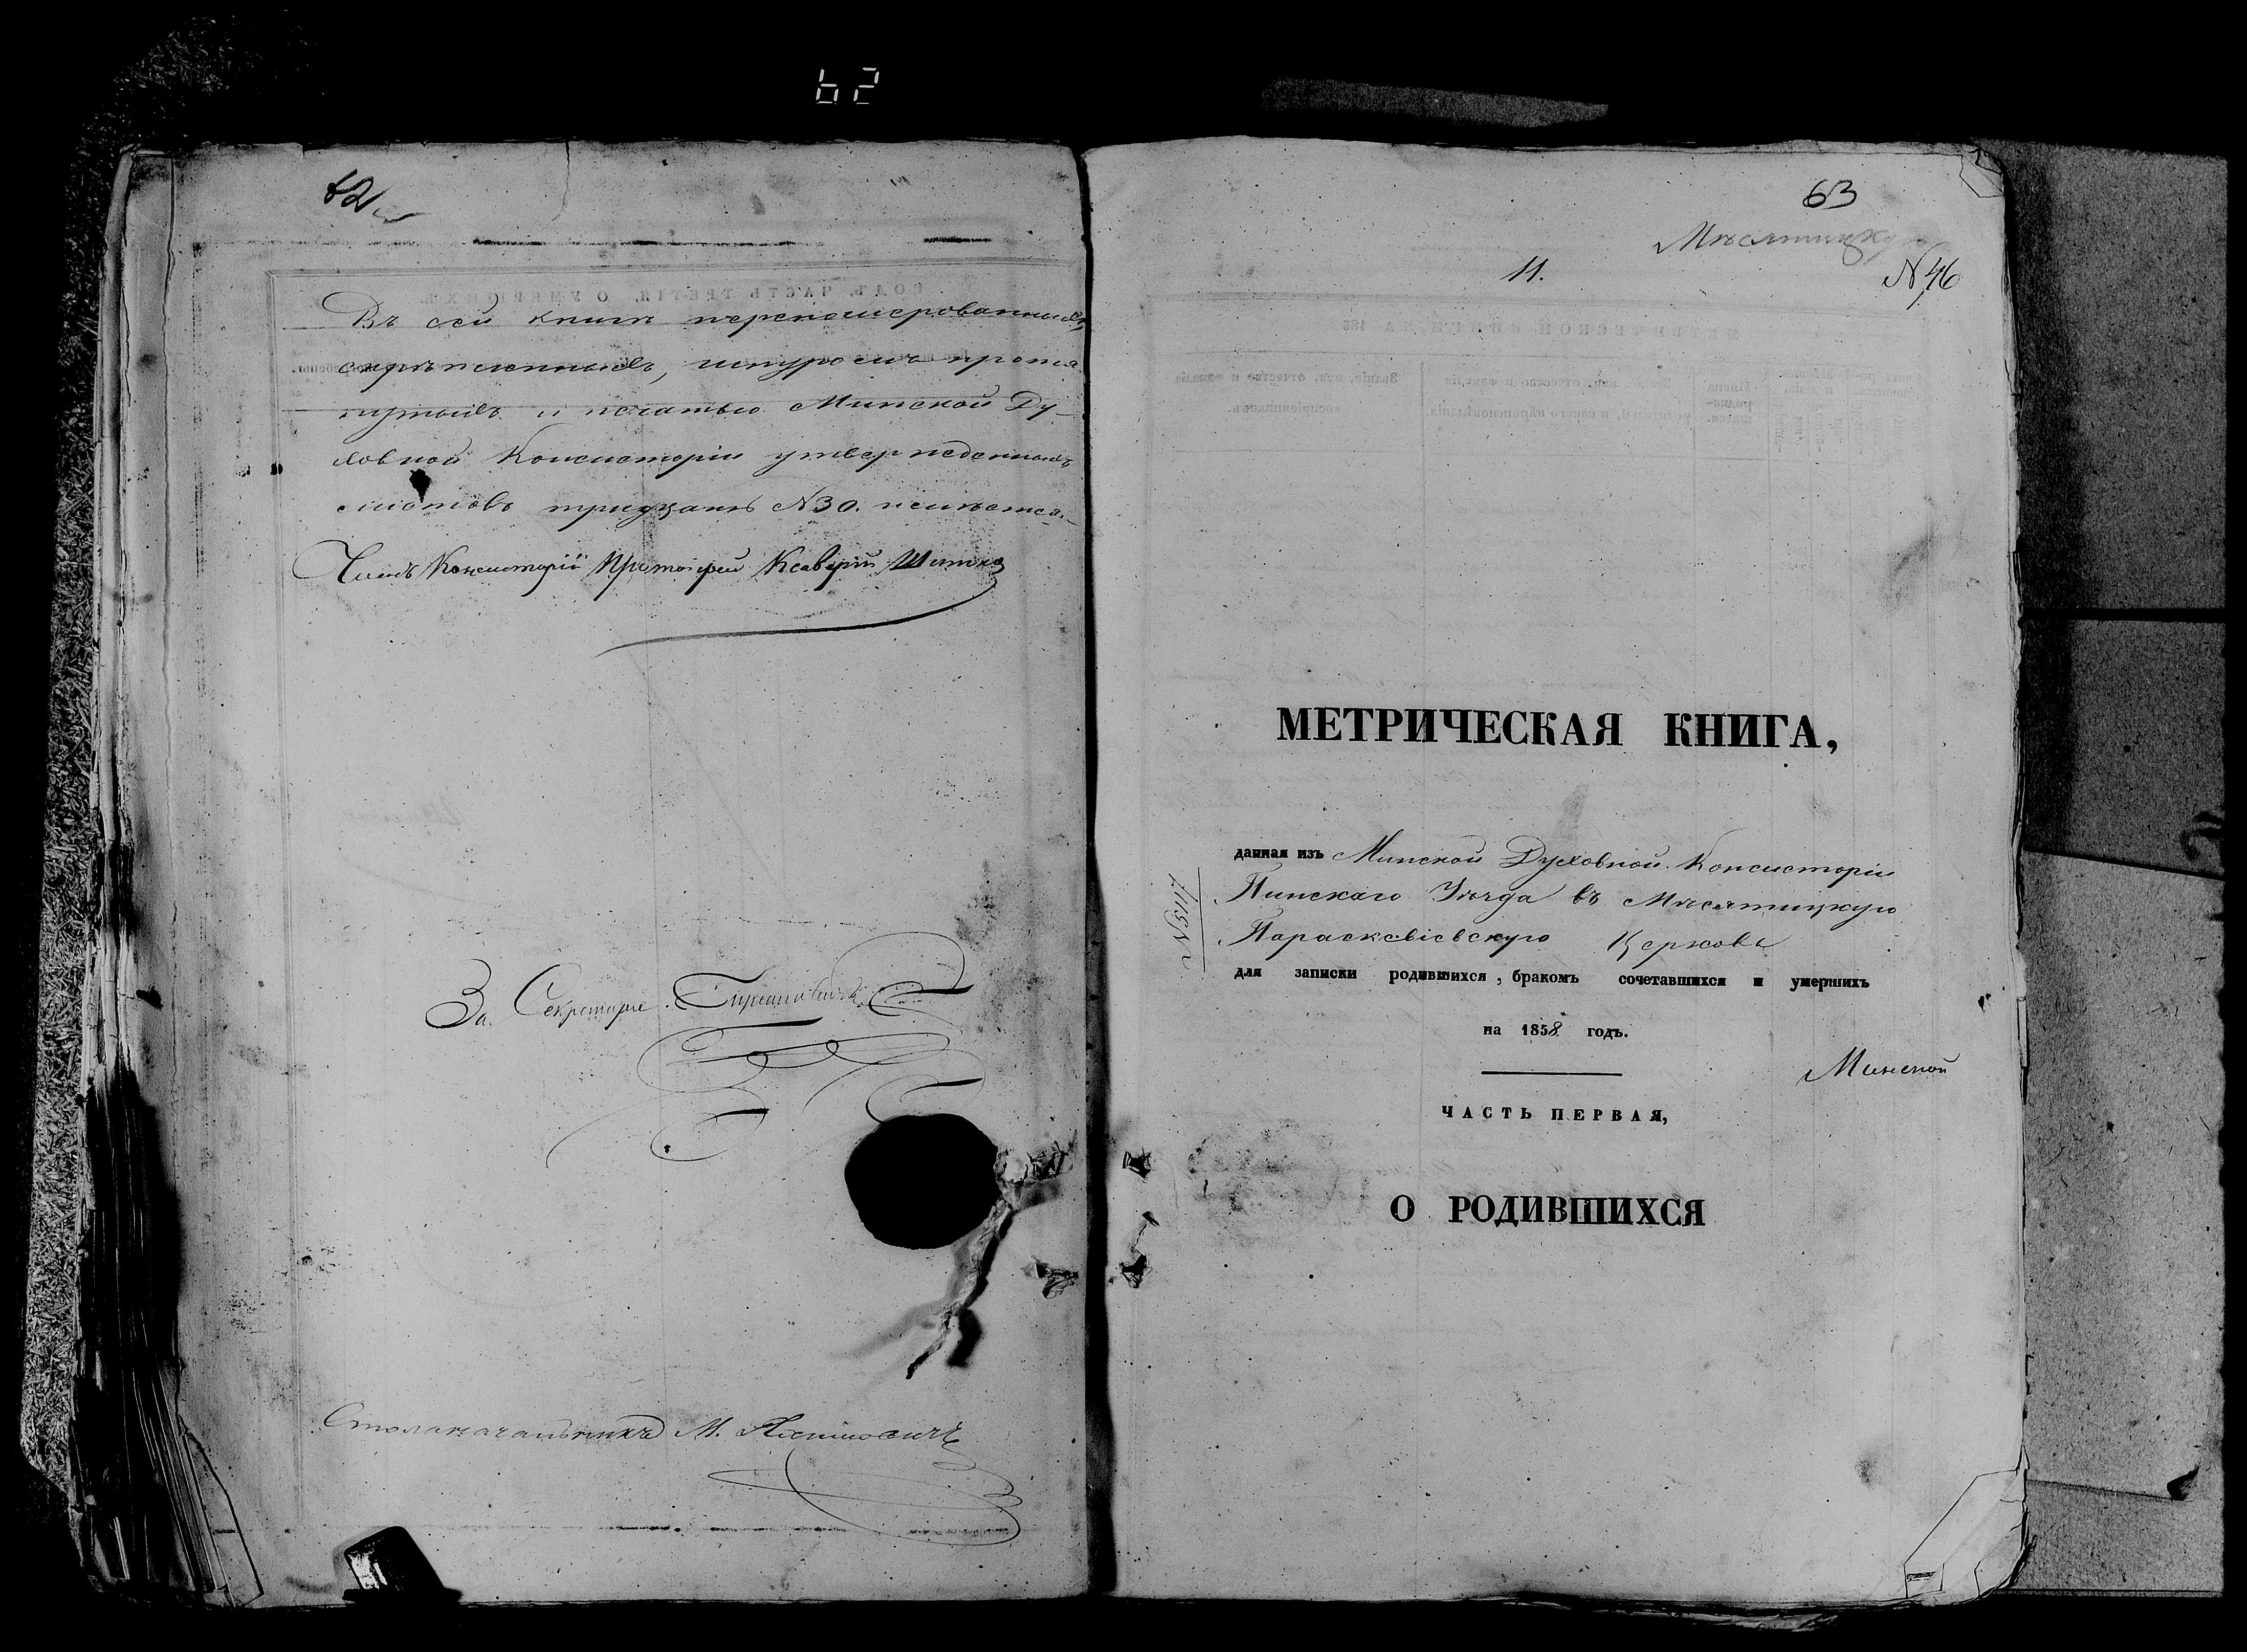 62
62
Въ сей книгѣ перенумерованныхъ,
скрѣпленныхъ, шнуромъ протя
нутыхъ и печатью Минской Ду-
ховной Консисторіи утвержденныхъ
листовъ тридцать N30. числится.
Членъ Консисторіи Протоіерей Ксаверій
За Секретаря
Столоначальникъ М.
63
Мѣсятицкую
11.
N46
МЕТРИЧЕСКАЯ КНИГА,
данная изъ Минской Духовной Консисторіи
Пинскаго Уѣзда въ Мѣсятицкую
Параскевіевскую Церковь
N5117
для записки родившихся, бракомъ сочетавшихся и умершихъ
на 1858 годъ.
Минской
ЧАСТЬ ПЕРВАЯ,
О РОДИВШИХСЯ